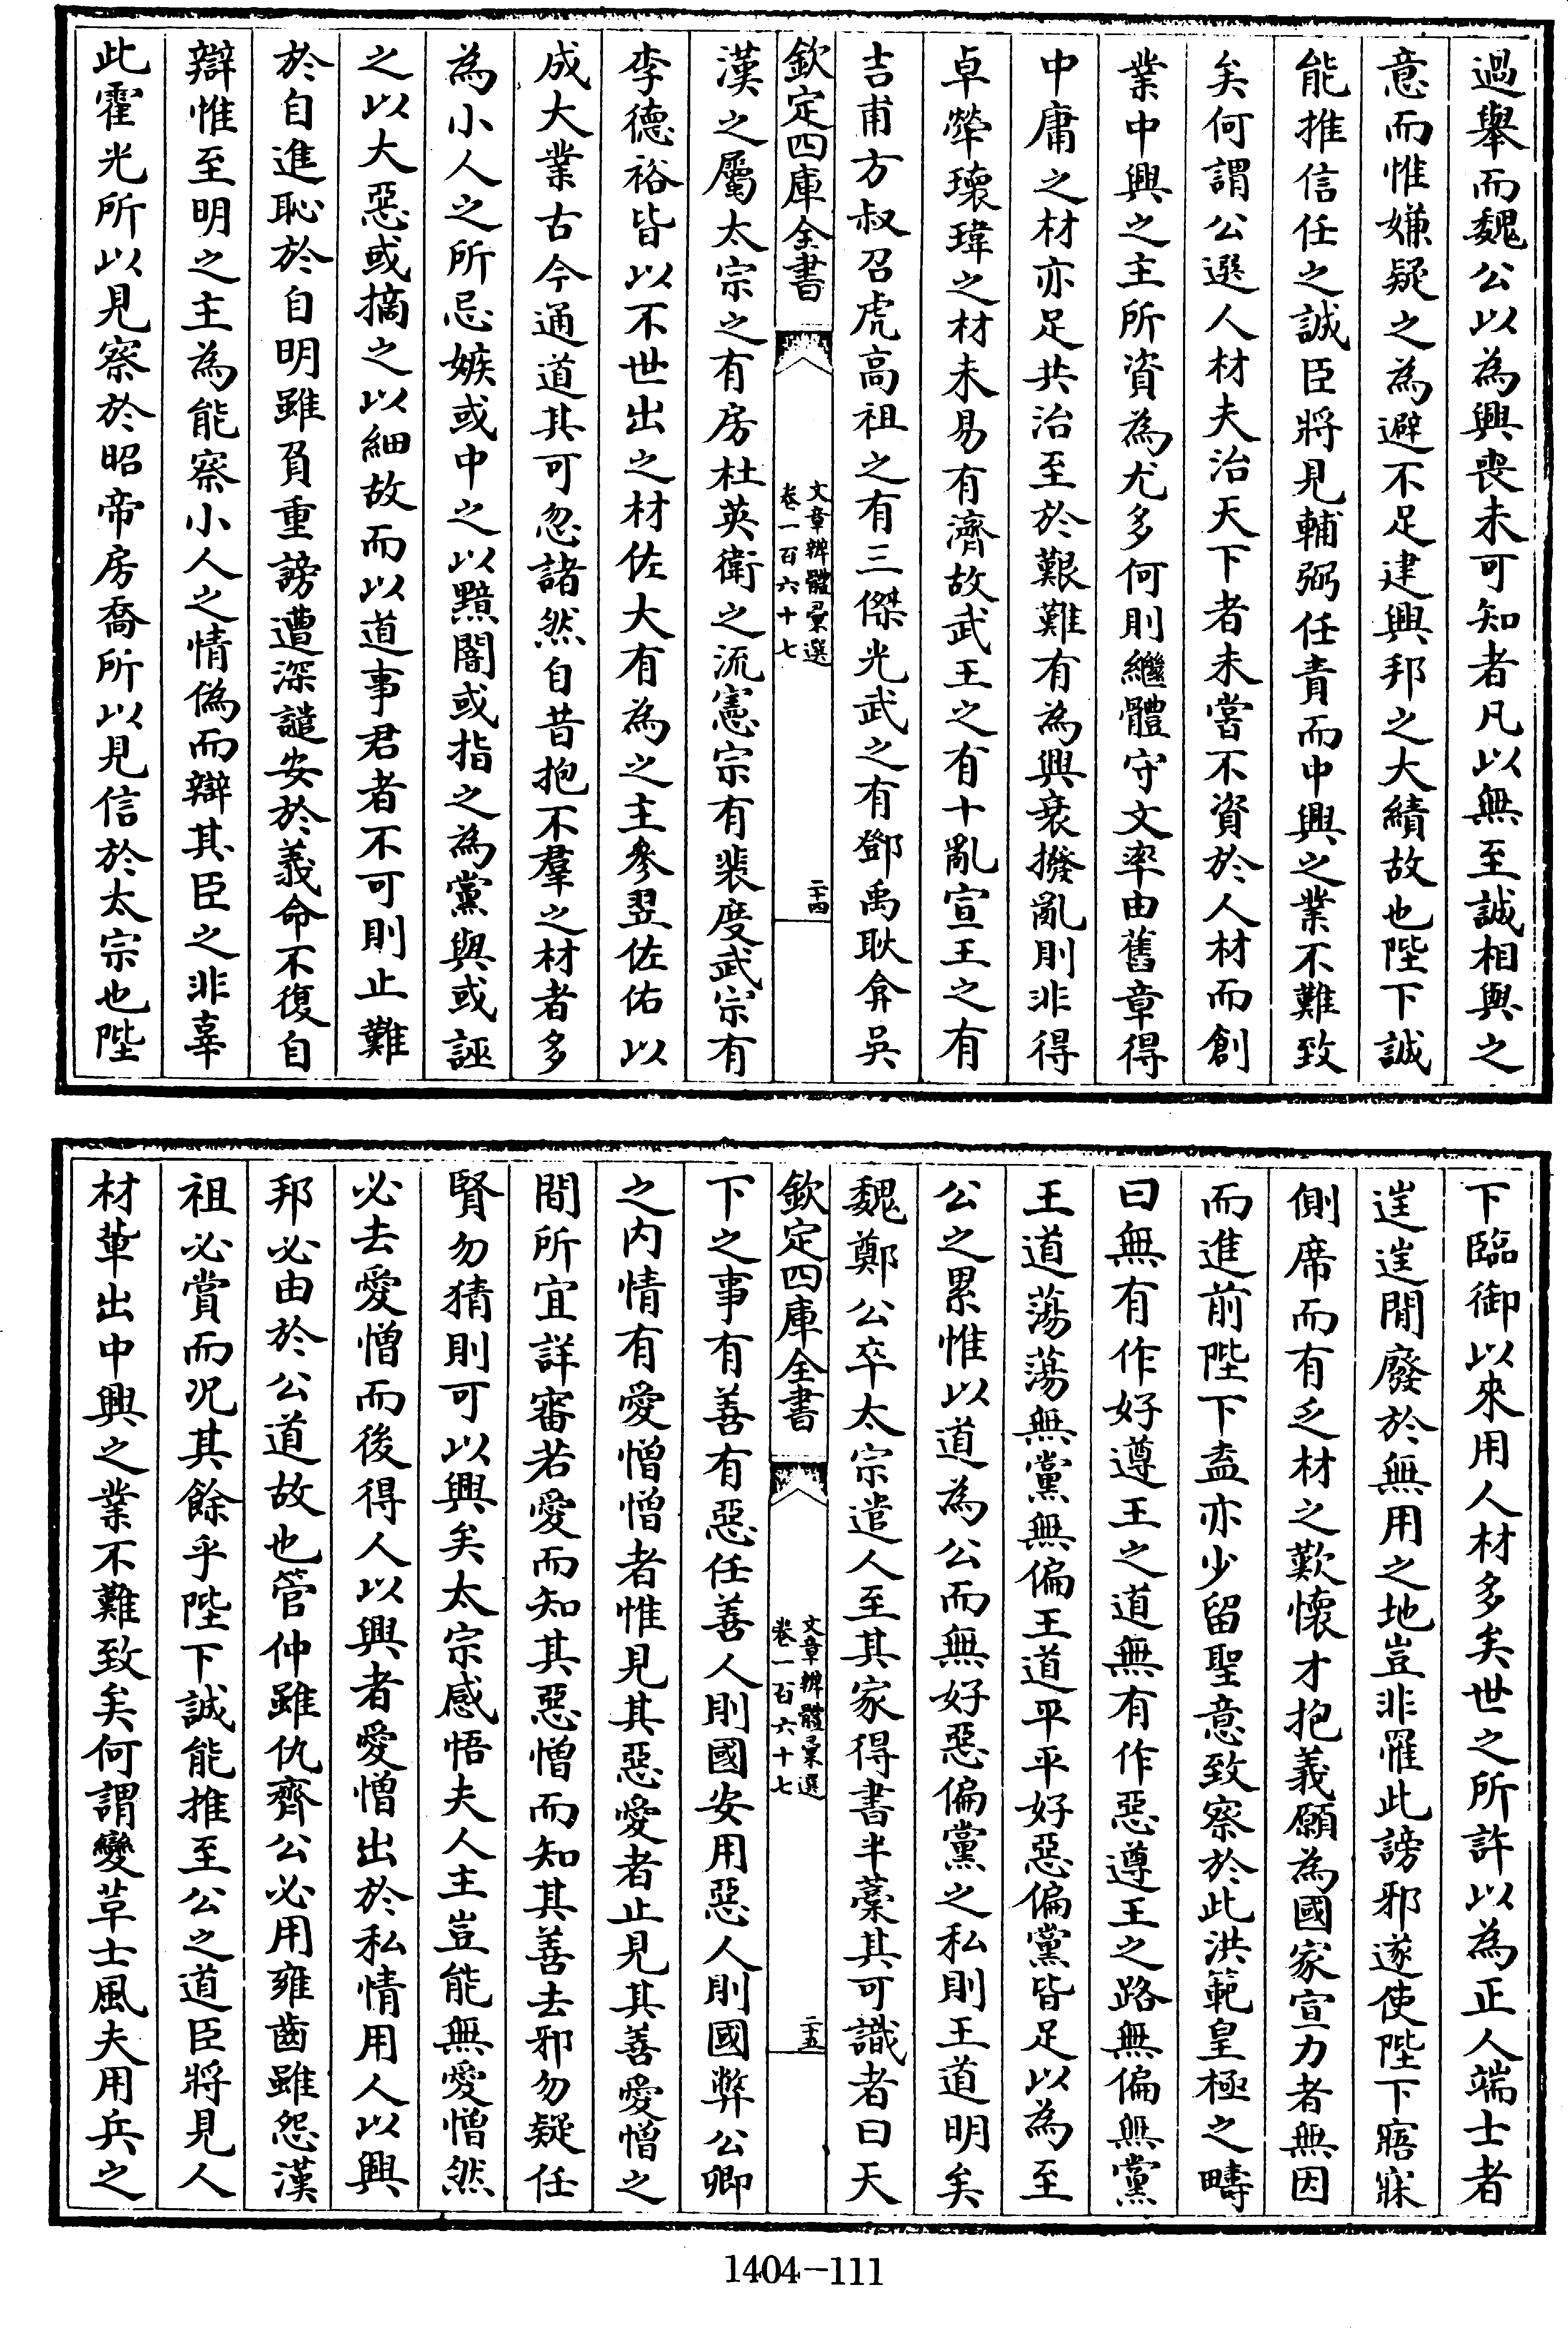 過舉而魏公以為興喪未可知者凡以無至誠相與之
意而惟嫌疑之為避不足建興邦之大績故也陛下誠
能推信任之誠臣將見輔弼任責而中興之業不難致
矣何謂公選人材夫治天下者未嘗不資於人材而創
業中興之主所資為尤多何則繼體守文率由舊章得
中庸之材亦足共治至於艱難有為興衰撥亂則非得
卓犖瓌瑋之材未易有濟故武王之有十亂宣王之有
吉甫方叔召虎高祖之有三傑光武之有鄧禹耿弇吳
欽定四庫全書
文章辨體彙選
卷一百六十七
二十四
漢之屬太宗之有房杜英衛之流憲宗有裴度武宗有
李德裕皆以不世出之材佐大有為之主參翌佐佑以
成大業古今通道其可忽諸然自昔抱不羣之材者多
為小人之所忌嫉或中之以黯闇或指之為黨與或誣
之以大惡或摘之以細故而以道事君者不可則止難
於自進恥於自明雖負重謗遭深譴安於義命不復自
辯惟至明之主為能察小人之情偽而辯其臣之非辜
此霍光所以見察於昭帝房喬所以見信於太宗也陛
下臨御以來用人材多矣世之所許以為正人端士者
逞逞閒廢於無用之地豈非罹此謗邪遂使陛下寤寐
側席而有乏材之歎懷才抱義願為國家宣力者無因
而進前陛下盍亦少留聖意致察於此洪範皇極之疇
曰無有作好遵王之道無有作惡遵王之路無偏無黨
王道蕩蕩無黨無偏王道平平好惡偏黨皆足以為至
公之累惟以道為公而無好惡偏黨之私則王道明矣
魏鄭公卒太宗遣人至其家得書半藁其可識者曰天
欽定四庫全書
文章辨體彙選
卷一百六十七
二十五
下之事有善有惡任善人則國安用惡人則國弊公卿
之內情有愛憎憎者惟見其惡愛者止見其善愛憎之
間所宜詳審若愛而知其惡憎而知其善去邪勿疑任
賢勿猜則可以興矣太宗感悟夫人主豈能無愛憎然
必去愛憎而後得人以興者愛憎出於私情用人以興
邦必由於公道故也管仲雖仇齊公必用雍齒雖怨漢
祖必賞而況其餘乎陛下誠能推至公之道臣將見人
材輩出中興之業不難致矣何謂變草士風夫用兵之
1404-111